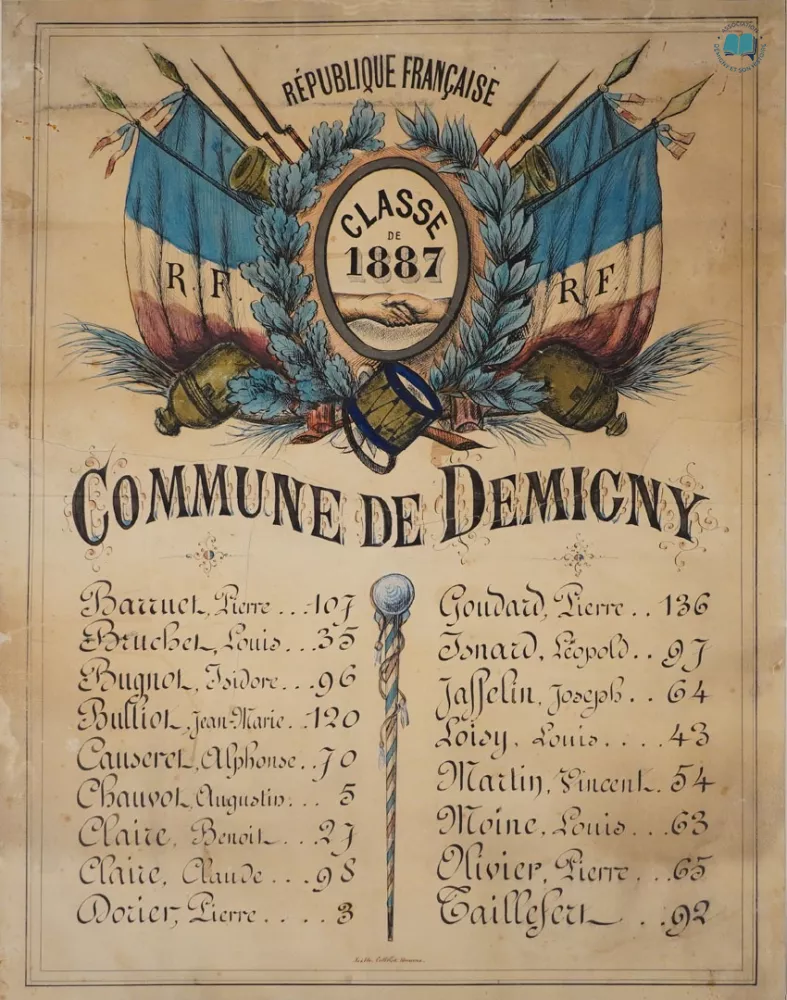 RÉPUBLIQUE FRANÇAISE
CLASSE
DE
1887
R. F.
R F.
COMMUNE DE DEMIGNY
Barruet, Pierre . . 107
Bruchet, Louis . . 35
Bugnot, Isidore . . . 96
Bulliot, Jean-Marie . . 120
Causeret, Alphonse . . 70
Chauvot, Augustin . . . 5
Claire, Benoit . . . 27
Claire, Claude . . . 98
Dorier, Pierre . . . . 3
Goudard, Pierre . . 136
Isnard, Léopold . . 97
Jasselin, Joseph . . 64
Loisy, Louis . . . . 43
Martin, Vincent . 54
Moine, Louis . . . 63
Olivier, Pierre . . . 65
Taillefert . . . 92